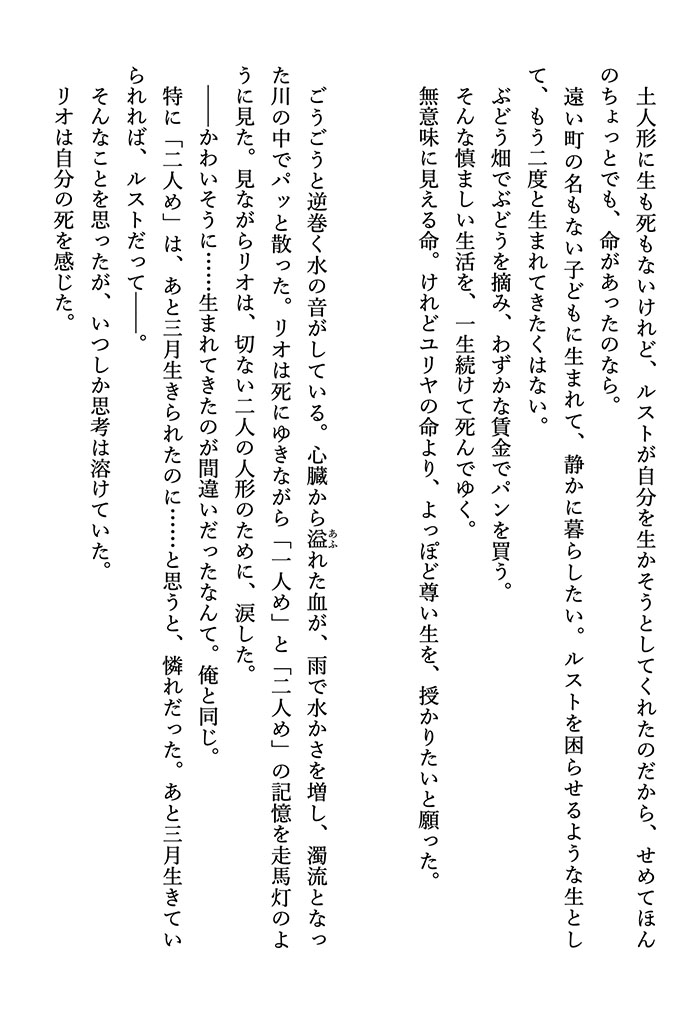 土人形に生も死もないけれど、ルストが自分を生かそうとしてくれたのだから、せめてほん
のちょっとでも、命があったのなら。
遠い町の名もない子どもに生まれて、静かに暮らしたい。ルストを困らせるような生とし
て、もう二度と生まれてきたくはない。
ぶどう畑でぶどうを摘み、わずかな賃金でパンを買う。
そんな慎ましい生活を、一生続けて死んでゆく。
無意味に見える命。けれどユリヤの命より、よっぽど尊い生を、授かりたいと願った。
ごうごうと逆巻く水の音がしている。心臓から溢れた血が、雨で水かさを増し、濁流となっ
た川の中でパッと散った。リオは死にゆきながら「一人め」と「二人め」の記憶を走馬灯のよ
うに見た。見ながらリオは、切ない二人の人形のために、涙した。
――かわいそうに……生まれてきたのが間違いだったなんて。俺と同じ。
特に「二人め」は、あと三月生きられたのに……と思うと、憐れだった。あと三月生きてい
られれば、ルストだって――。
そんなことを思ったが、いつしか思考は溶けていた。
リオは自分の死を感じた。